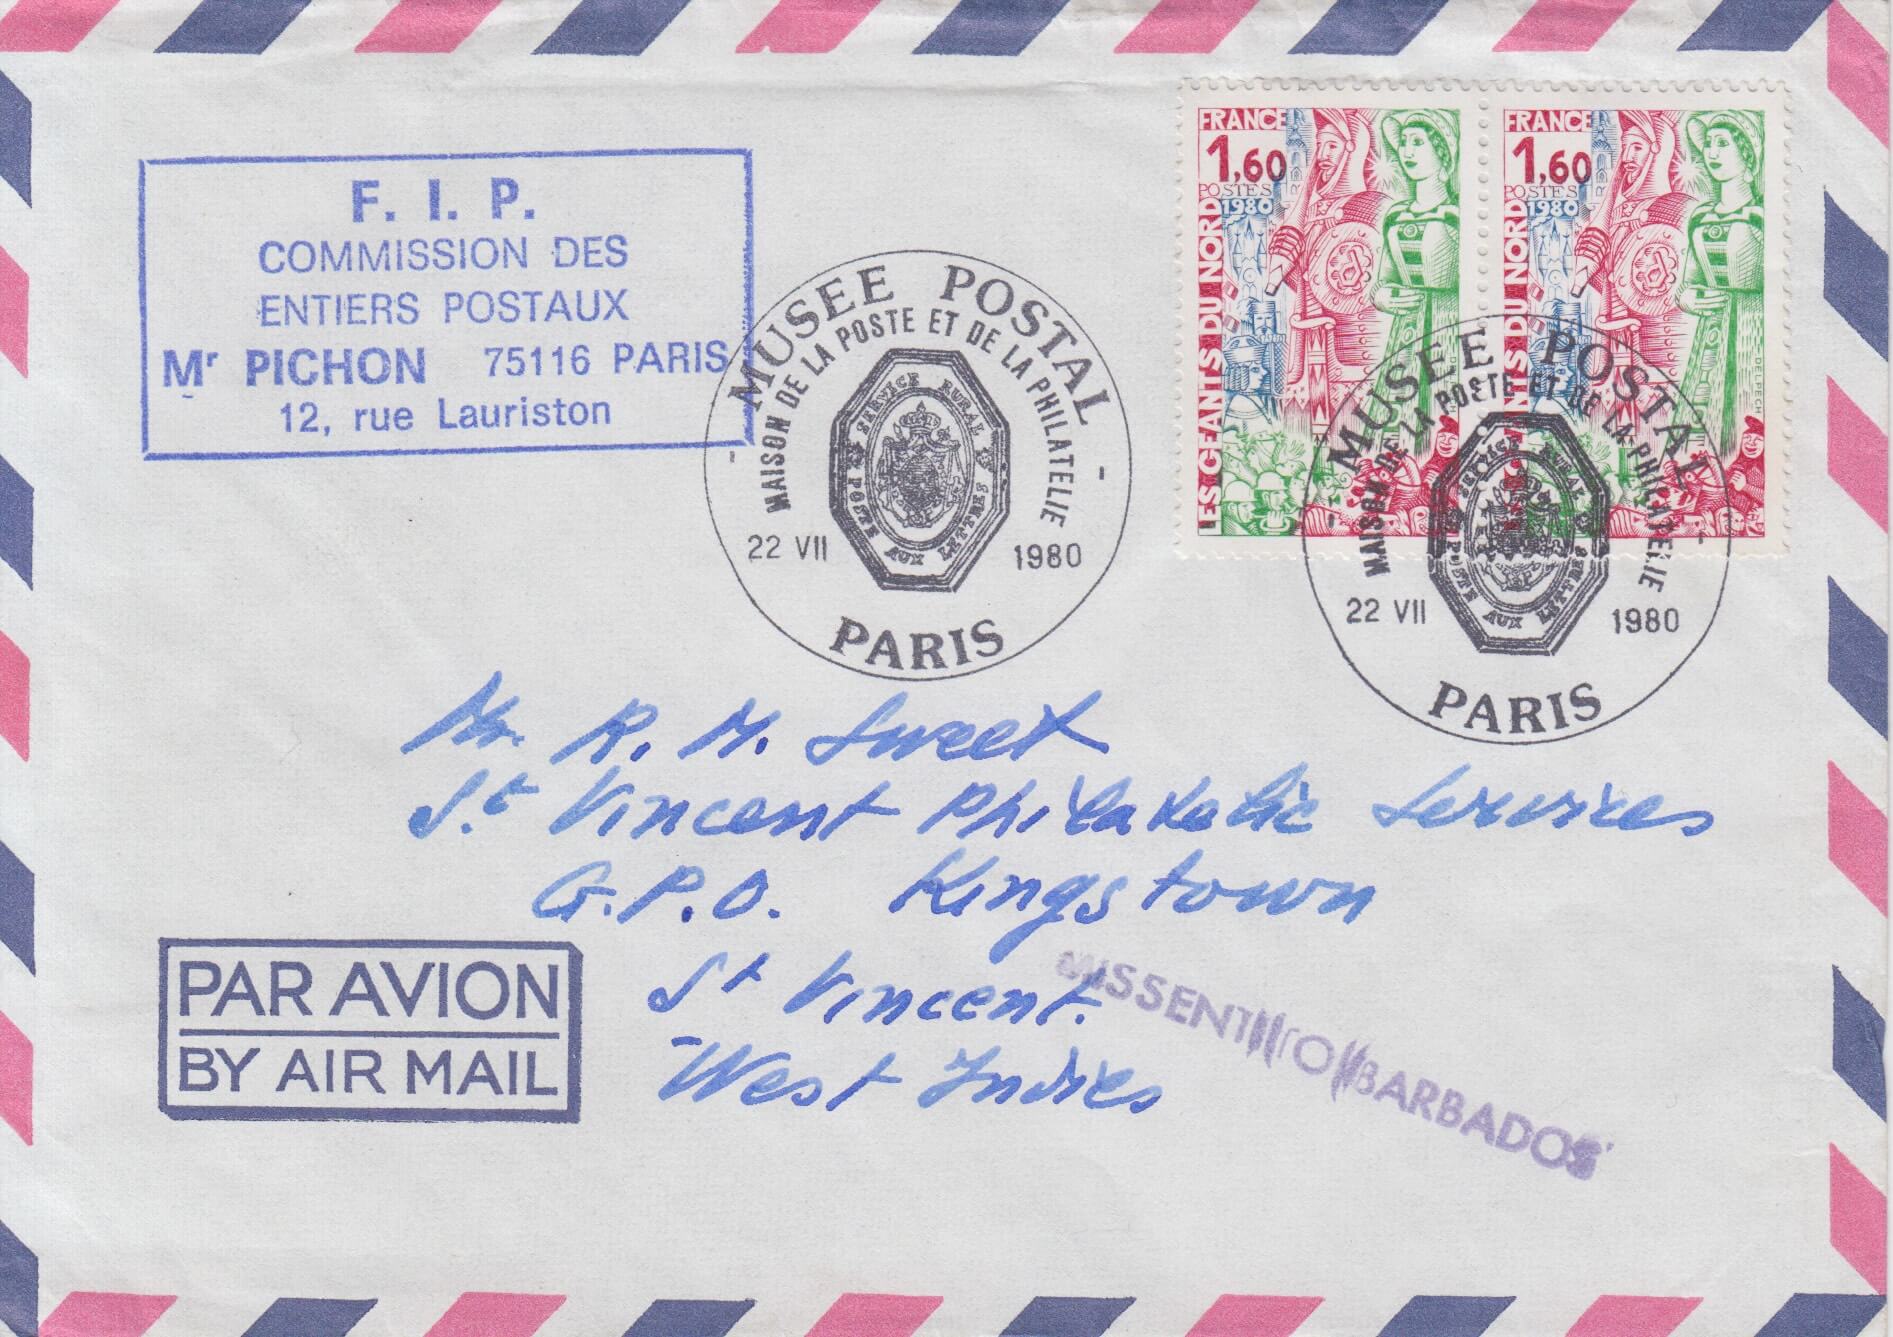 F. I. P.
COMMISSION DES
ENTIERS POSTAUX
Mr PICHON 75116 PARIS
12, rue Lauriston
MUSEE POSTAL
MAISON DE LA POSTE ET DE LA PHILATELIE
SERVICE RURAL
POSTE AUX LETTRES
22 VII 1980
PARIS
FRANCE
1,60
POSTES
1980
LES GEANTS DU NORD
FRANCE
1,60
POSTES
1980
LES GEANTS DU NORD
DELPECH
MUSEE POSTAL
MAISON DE LA POSTE ET DE LA PHILATELIE
SERVICE RURAL
POSTE AUX LETTRES
22 VII 1980
PARIS
Mr. R. M. Sweet
St Vincent Philatelic Services
G.P.O. Kingstown
St Vincent.
West Indies
MISSENT TO BARBADOS
PAR AVION
BY AIR MAIL